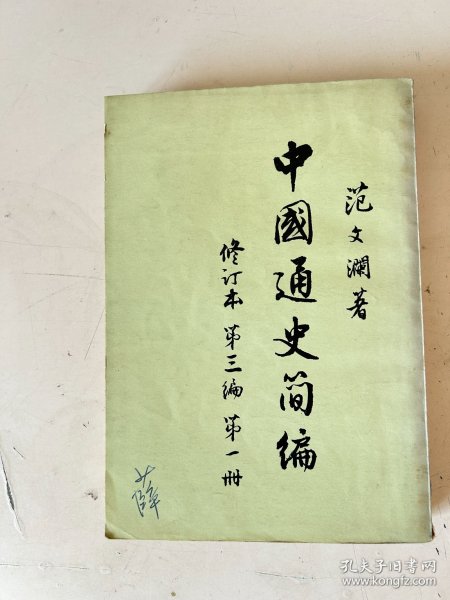 范文澜著
中國通史简编
修订本 第三编 第一册
薛
孔夫子旧书网
www.kongfz.com